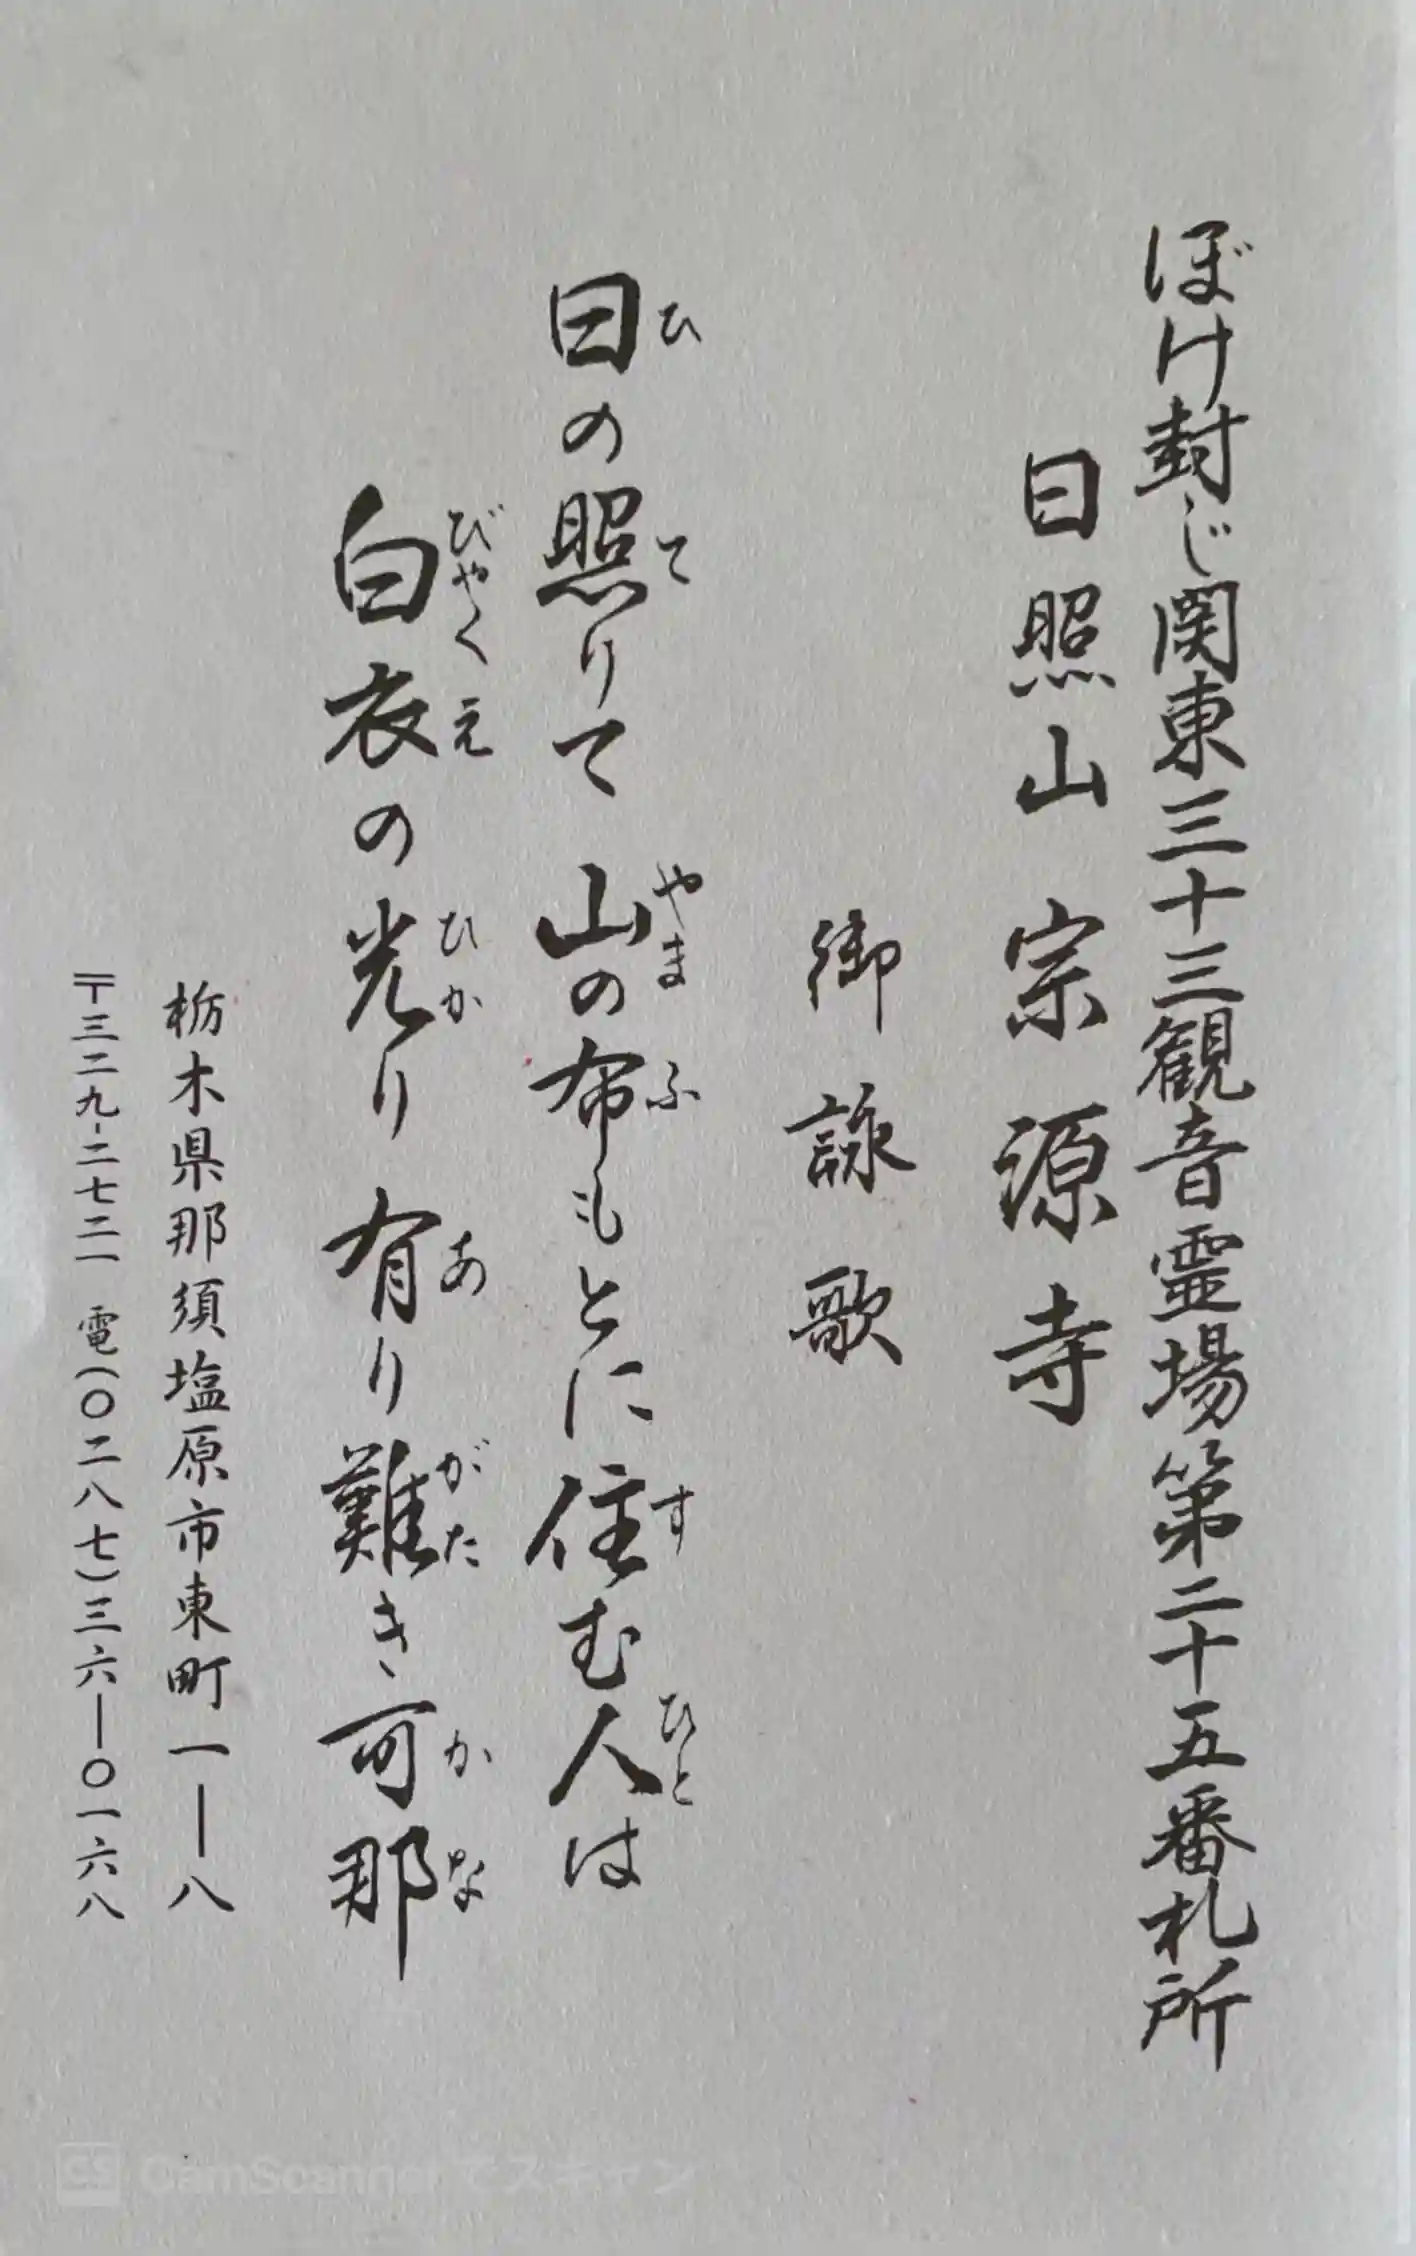 ぼけ封じ関東三十三観音霊場第二十五番札所
日照山 宗源寺
御詠歌
日の照りて 山の布もとに住む人は
ひ て やま ふ す ひと
白衣の光り 有り難き可那
びゃくえ ひか あ がた かな
栃木県那須塩原市東町一―八
〒三二九-二七二一 電(〇二八七)三六―〇一六八
CS CamScannerでスキャン